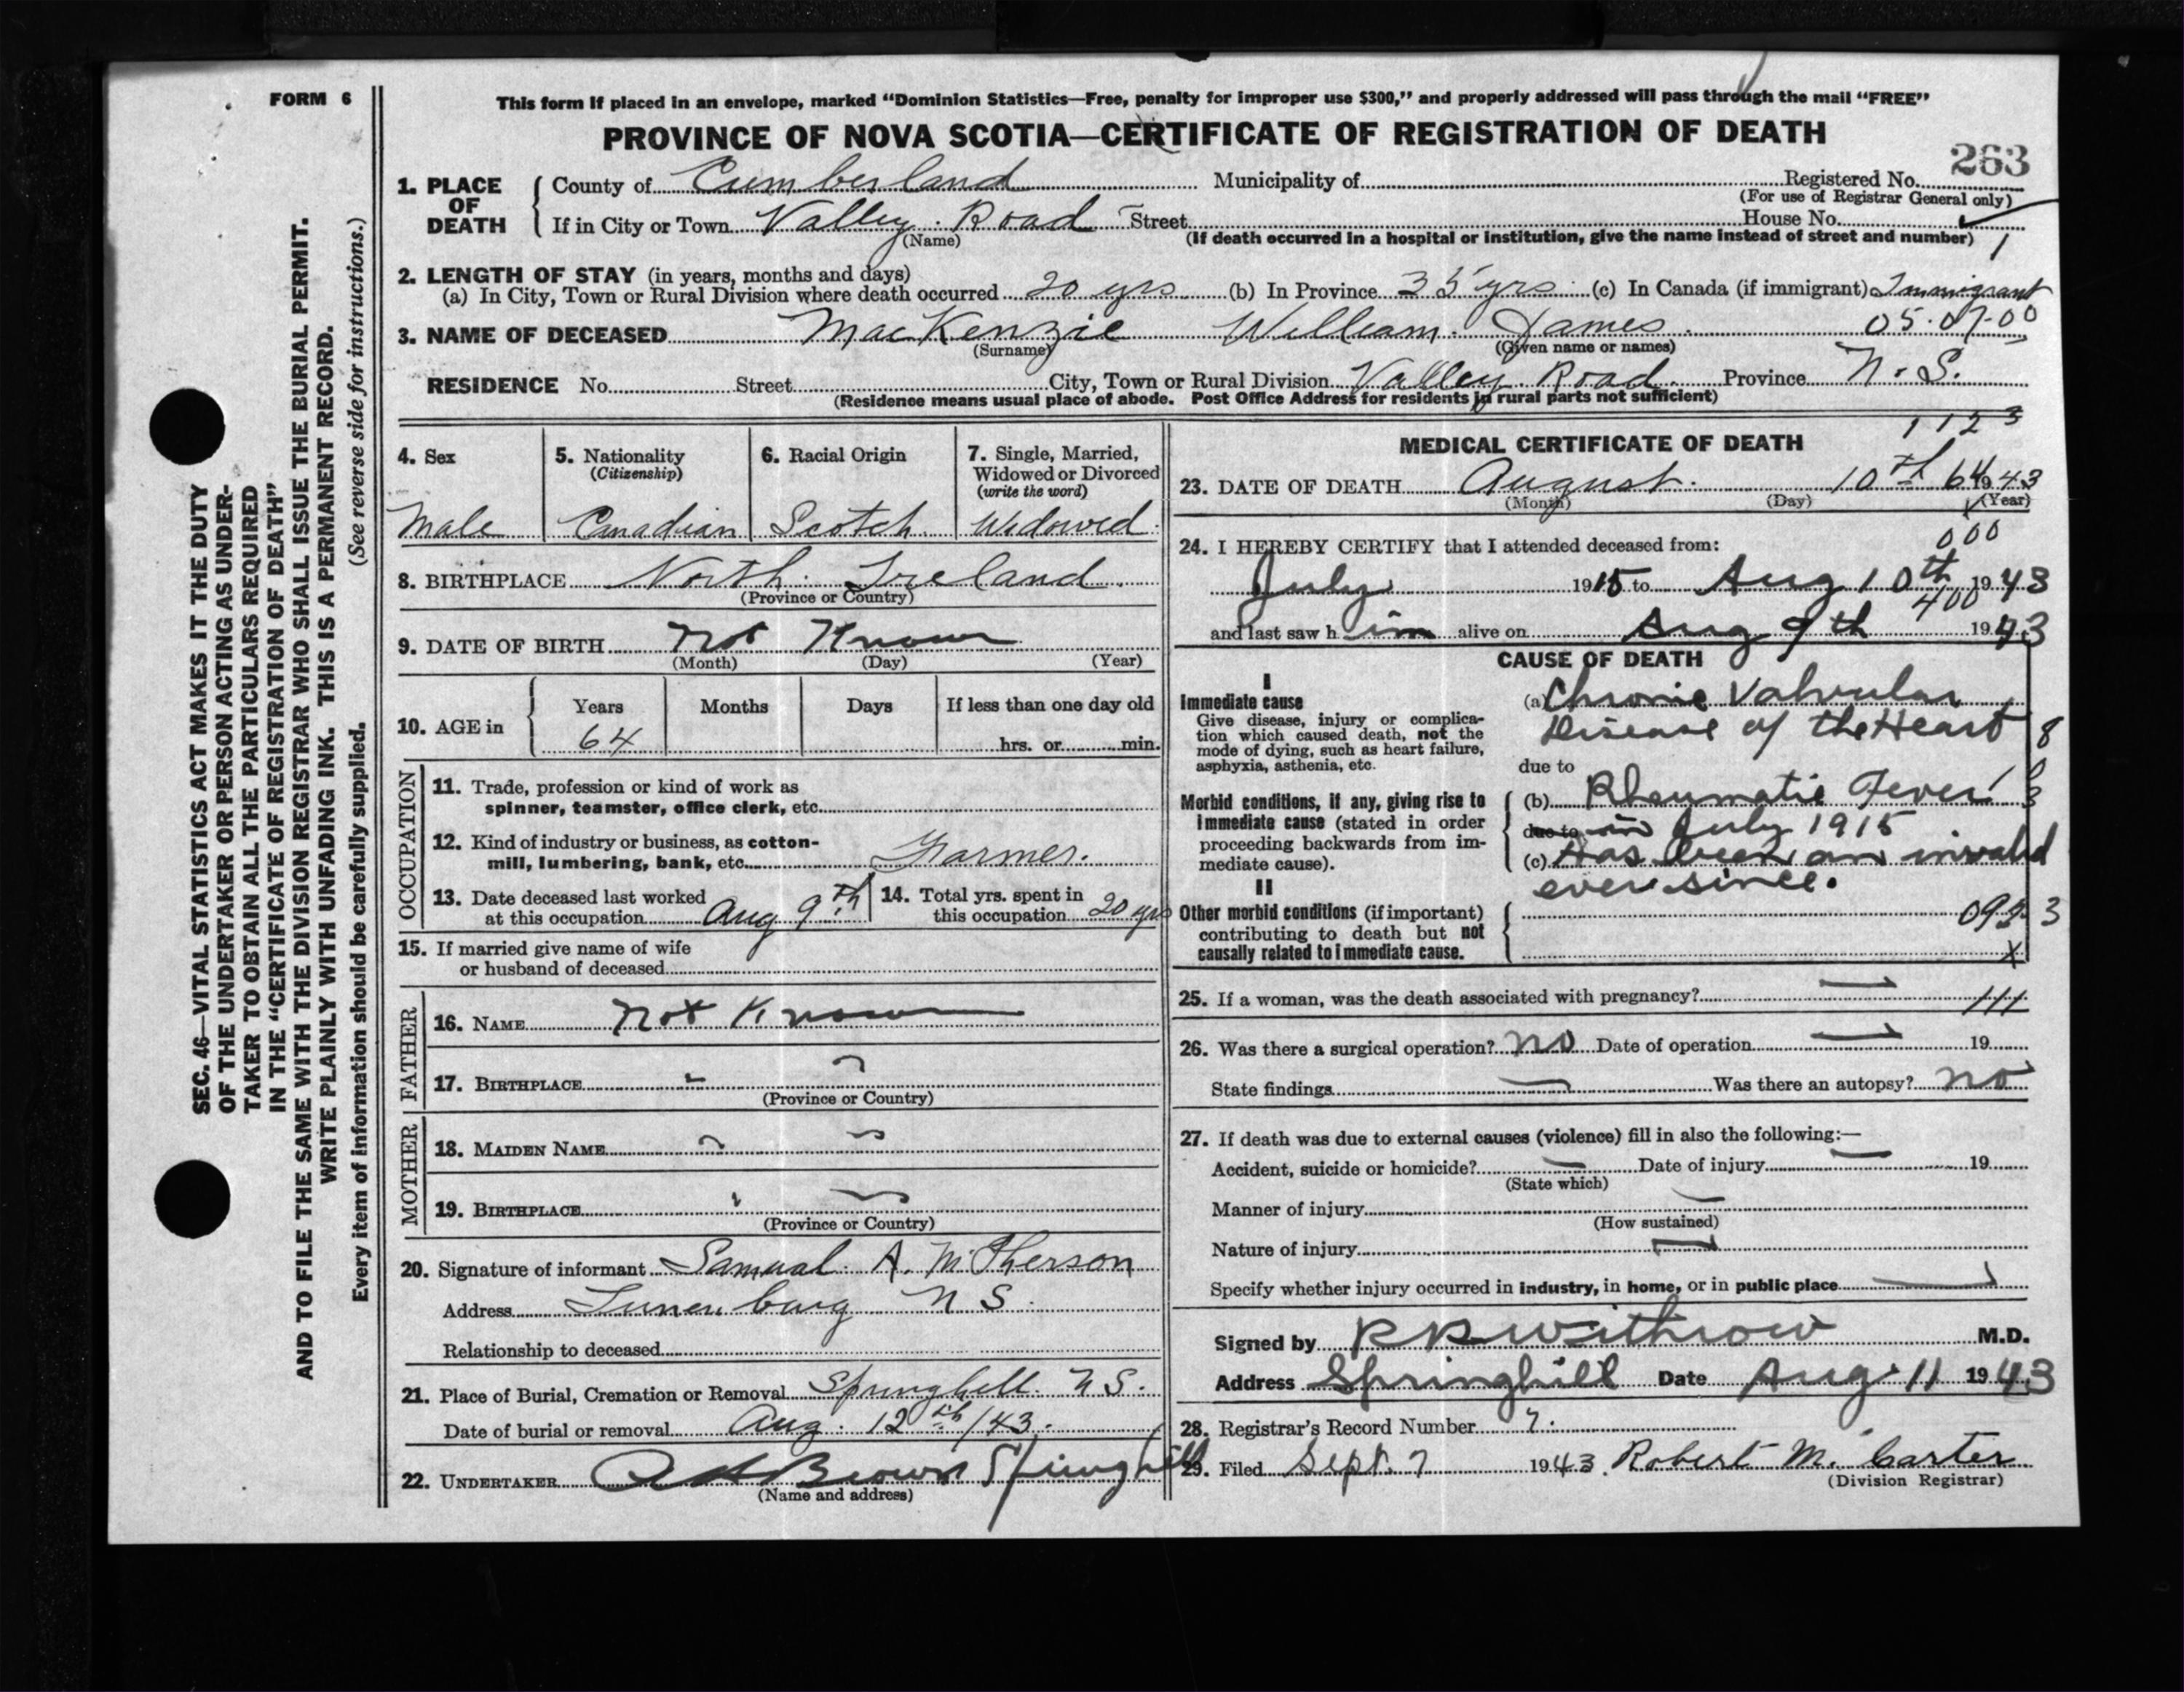 FORM 6
This form if placed in an envelope, marked “Dominion Statistics—Free, penalty for improper use $300,” and properly addressed will pass through the mail “FREE”
PROVINCE OF NOVA SCOTIA—CERTIFICATE OF REGISTRATION OF DEATH
263
1. PLACE OF DEATH
County of Cumberland Municipality of Registered No.
(For use of Registrar General only)
If in City or Town Valley Road Street House No.
(Name) (If death occurred in a hospital or institution, give the name instead of street and number) 1
2. LENGTH OF STAY (in years, months and days)
(a) In City, Town or Rural Division where death occurred 20 yrs (b) In Province 35 yrs (c) In Canada (if immigrant) Immigrant
3. NAME OF DECEASED MacKenzie William James 05.07.00
(Surname) (Given name or names)
RESIDENCE No. Street City, Town or Rural Division Valley Road Province N. S.
(Residence means usual place of abode. Post Office Address for residents in rural parts not sufficient)
4. Sex
Male
5. Nationality
(Citizenship)
Canadian
6. Racial Origin
Scotch
7. Single, Married,
Widowed or Divorced
(write the word)
Widowed
8. BIRTHPLACE North Ireland
(Province or Country)
9. DATE OF BIRTH Not Known
(Month) (Day) (Year)
10. AGE in
Years Months Days If less than one day old
64 hrs. or min.
OCCUPATION
11. Trade, profession or kind of work as
spinner, teamster, office clerk, etc.
12. Kind of industry or business, as cotton-
mill, lumbering, bank, etc. Farmer.
13. Date deceased last worked
at this occupation Aug 9th
14. Total yrs. spent in
this occupation 20 yrs
15. If married give name of wife
or husband of deceased
FATHER
16. NAME Not Known
17. BIRTHPLACE
(Province or Country)
MOTHER
18. MAIDEN NAME
19. BIRTHPLACE
(Province or Country)
20. Signature of informant Samual A. McPherson
Address Lunenburg N S
Relationship to deceased
21. Place of Burial, Cremation or Removal Springhill N S.
Date of burial or removal Aug. 12th/43.
22. UNDERTAKER Brown Springhill
(Name and address)
1123
MEDICAL CERTIFICATE OF DEATH
23. DATE OF DEATH August 10th 64 1943
(Month) (Day) (Year)
24. I HEREBY CERTIFY that I attended deceased from: 000
July 1915 to Aug 10th 1943
400
and last saw him alive on Aug 9th 1943
CAUSE OF DEATH
I
Immediate cause
Give disease, injury or complica-
tion which caused death, not the
mode of dying, such as heart failure,
asphyxia, asthenia, etc.
(a) Chronic Valvular
Disease of the Heart 8
due to
Morbid conditions, if any, giving rise to
immediate cause (stated in order
proceeding backwards from im-
mediate cause).
(b) Rheumatic Fever
due to in July 1915
(c) Has been an invalid
ever since.
II
Other morbid conditions (if important)
contributing to death but not
causally related to immediate cause.
3
x
25. If a woman, was the death associated with pregnancy? — 111
26. Was there a surgical operation? no Date of operation — 19
State findings — Was there an autopsy? no
27. If death was due to external causes (violence) fill in also the following:—
Accident, suicide or homicide? — Date of injury — 19
(State which)
Manner of injury —
(How sustained)
Nature of injury —
Specify whether injury occurred in industry, in home, or in public place —
Signed by Withrow M.D.
Address Springhill Date Aug. 11 1943
28. Registrar's Record Number 7.
29. Filed Sept. 7 1943. Robert M. Carter
(Division Registrar)
SEC. 46—VITAL STATISTICS ACT MAKES IT THE DUTY
OF THE UNDERTAKER OR PERSON ACTING AS UNDER-
TAKER TO OBTAIN ALL THE PARTICULARS REQUIRED
IN THE “CERTIFICATE OF REGISTRATION OF DEATH”
AND TO FILE THE SAME WITH THE DIVISION REGISTRAR WHO SHALL ISSUE THE BURIAL PERMIT.
WRITE PLAINLY WITH UNFADING INK. THIS IS A PERMANENT RECORD.
Every item of information should be carefully supplied. (See reverse side for instructions.)